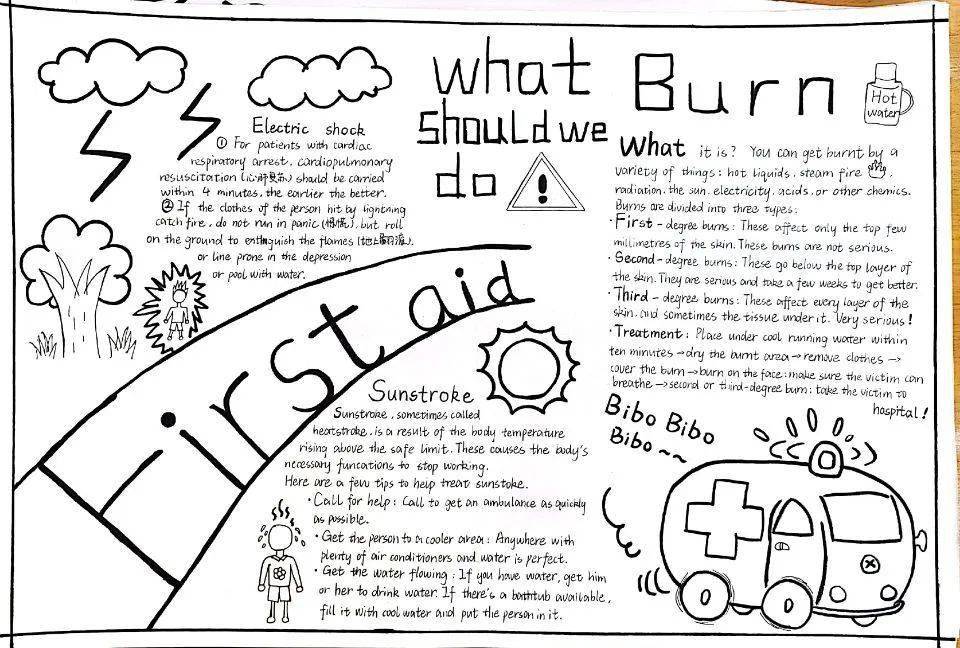 what
should we
do
Burn
Hot
water
Electric shock
① For patients with cardiac
respiratory arrest, cardiopulmonary
resuscitation (心肺复苏) should be carried
within 4 minutes, the earlier the better.
② If the clothes of the person hit by lightning
catch fire, do not run in panic (惊慌), but roll
on the ground to extinguish the flames
or line prone in the depression
or pool with water.
First aid
What it is? You can get burnt by a
variety of things: hot liquids, steam fire,
radiation, the sun, electricity, acids, or other chemics.
Burns are divided into three types:
·First-degree burns: These affect only the top few
millimetres of the skin. These burns are not serious.
·Second-degree burns: These go below the top layer of
the skin. They are serious and take a few weeks to get better.
·Third-degree burns: These affect every layer of the
skin. and sometimes the tissue under it. Very serious!
·Treatment: Place under cool running water within
ten minutes→dry the burnt area→remove clothes→
cover the burn→burn on the face: make sure the victim can
breathe→second or third-degree burn: take the victim to
hospital!
Sunstroke
Sunstroke, sometimes called
heatstroke, is a result of the body temperature
rising above the safe limit. These causes the body's
necessary funcations to stop working.
Here are a few tips to help treat sunstoke.
·Call for help: Call to get an ambulance as quickly
as possible.
·Get the person to a cooler area: Anywhere with
plenty of air conditioners and water is perfect.
·Get the water flowing: If you have water, get him
or her to drink water. If there's a bathtub available,
fill it with cool water and put the person in it.
Bibo Bibo
Bibo ~~